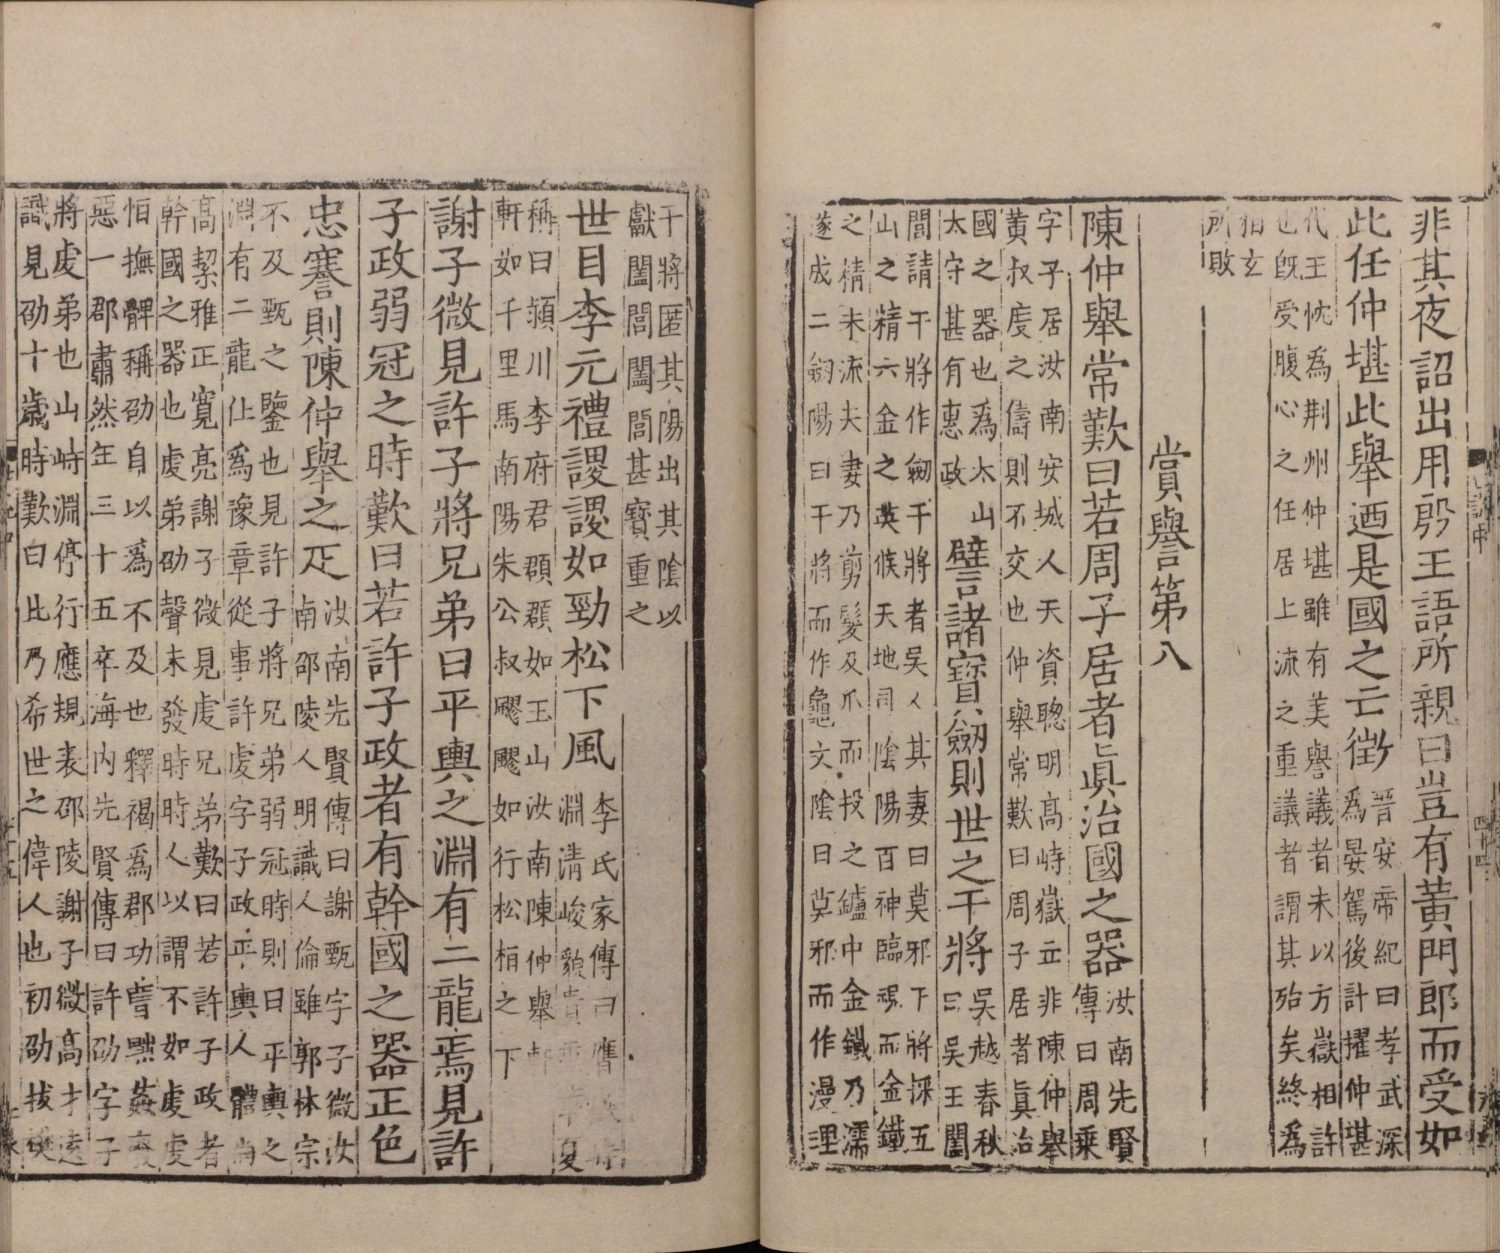 非其夜詔出用殷王語所親曰豈有黃門郎而受如
此任仲堪此舉迺是國之亡徵
晉安帝紀曰孝武深
為晏駕後計擢仲堪
代王忱為荆州仲堪雖有美譽議者未以方嶽相許
也旣受腹心之任居上流之重議者謂其殆矣終為
桓玄
所敗
賞譽第八
陳仲舉常歎曰若周子居者眞治國之器
汝南先賢
傳曰周乘
字子居汝南安城人天資聰明高峙嶽立非陳仲舉
黃叔度之儔則不交也仲舉常歎曰周子居者眞治
國之器也為太山
太守甚有惠政
譬諸寶劒則世之干將
吳越春秋
曰吳王闔
閭請干將作劒干將者吳人其妻曰莫邪干將採五
山之精六金之英候天地司陰陽百神臨視而金鐵
之精未流夫妻乃剪髮及爪而投之鑪中金鐵乃濡
遂成二劒陽曰干將而作龜文陰曰莫邪而作漫理
干將匿其陽出其陰以
獻闔閭闔閭甚寶重之
世目李元禮謖謖如勁松下風
李氏家傳曰膺
淵清峻貌貴重
稱曰潁川李府君頵頵如玉山汝南陳仲舉
軒如千里馬南陽朱公叔飂飂如行松栢之下
謝子微見許子將兄弟曰平輿之淵有二龍焉見許
子政弱冠之時歎曰若許子政者有幹國之器正色
忠謇則陳仲舉之疋
汝南先賢傳曰謝甄字子微汝
南邵陵人明識人倫雖郭林宗
不及甄之鑒也見許子將兄弟弱冠時則曰平輿之
淵有二龍仕為豫章從事許虔字子政平輿人體尚
高絜雅正寬亮謝子微見虔兄弟歎曰若許子政者
幹國之器也虔弟劭聲未發時時人以謂不如虔虔
怕撫髀稱劭自以為不及也釋褐為郡功曹黜姦廢
惡一郡肅然年三十五卒海內先賢傳曰許劭字子
將虔弟也山峙淵停行應規表邵陵謝子微高才遠
識見劭十歲時歎曰此乃希世之偉人也初劭拔